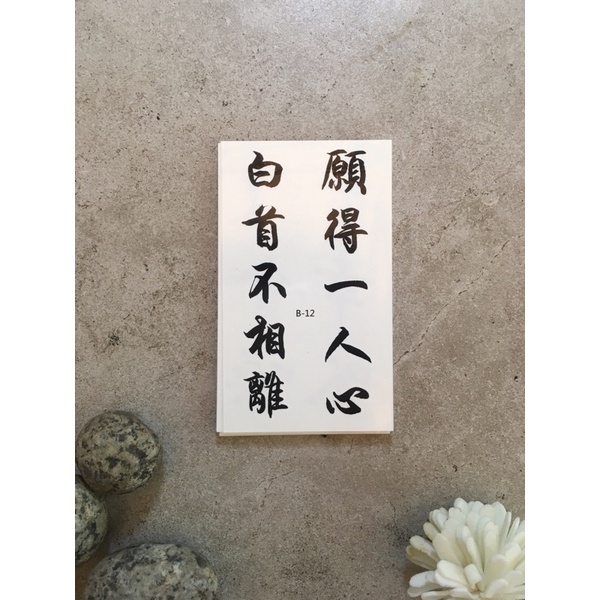 願得一人心
白首不相離
B-12